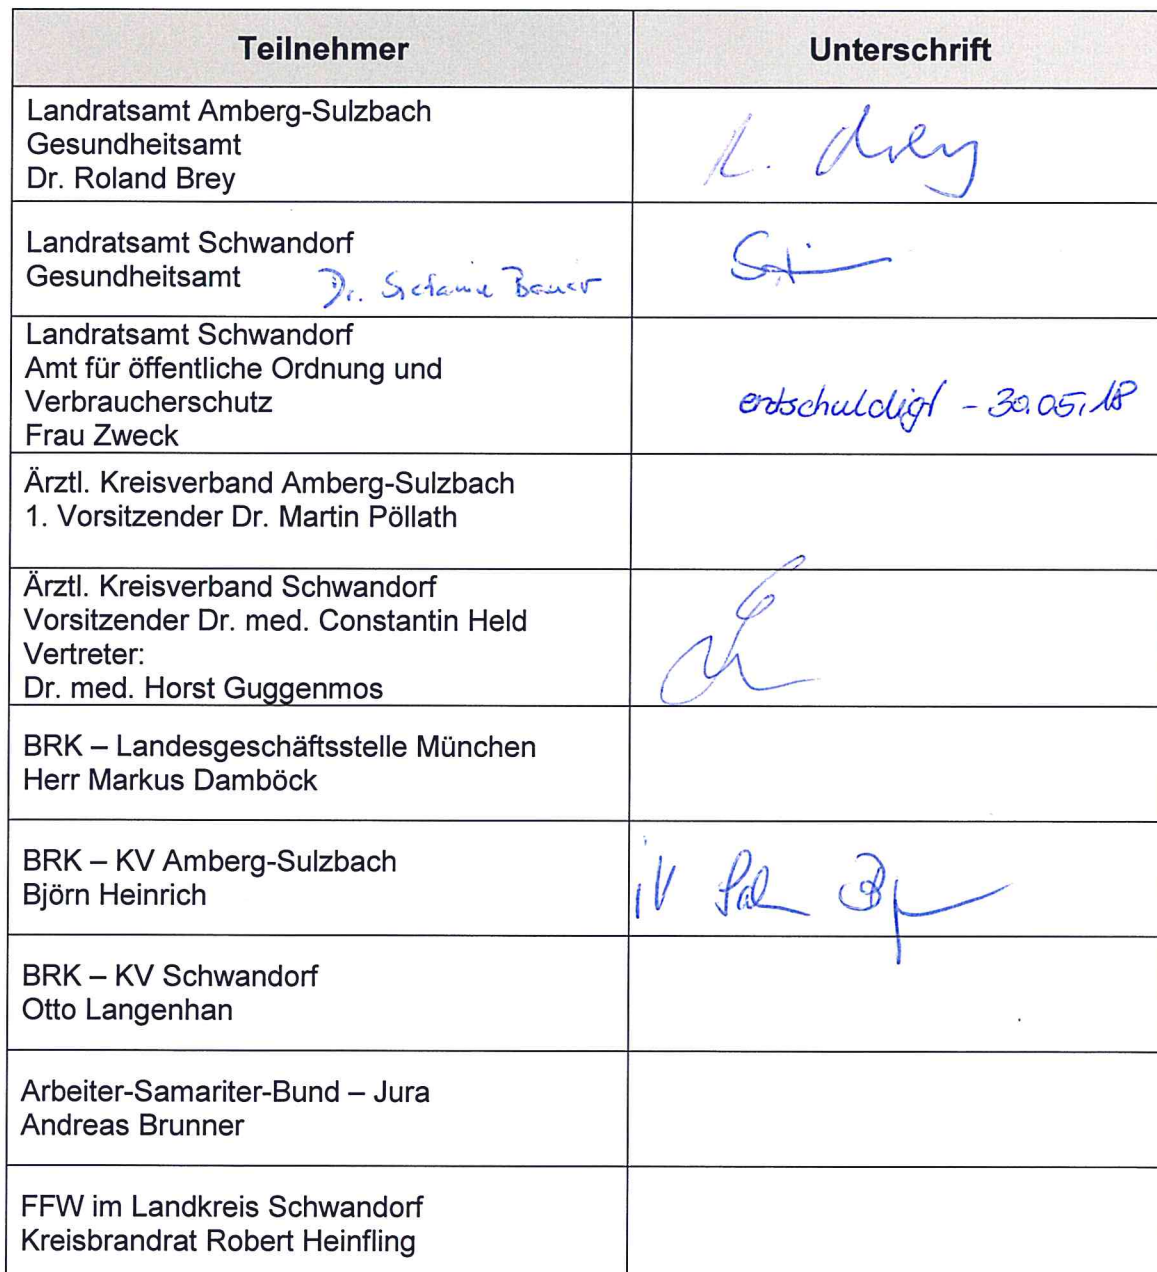 Teilnehmer Unterschrift
Landratsamt Amberg-Sulzbach
Gesundheitsamt
Dr. Roland Brey
Landratsamt Schwandorf
Gesundheitsamt Dr. Stefanie Bauer
Landratsamt Schwandorf
Amt für öffentliche Ordnung und
Verbraucherschutz
Frau Zweck
entschuldigt - 30.05.18
Ärztl. Kreisverband Amberg-Sulzbach
1. Vorsitzender Dr. Martin Pöllath
Ärztl. Kreisverband Schwandorf
Vorsitzender Dr. med. Constantin Held
Vertreter:
Dr. med. Horst Guggenmos
BRK – Landesgeschäftsstelle München
Herr Markus Damböck
BRK – KV Amberg-Sulzbach
Björn Heinrich
iV
BRK – KV Schwandorf
Otto Langenhan
Arbeiter-Samariter-Bund – Jura
Andreas Brunner
FFW im Landkreis Schwandorf
Kreisbrandrat Robert Heinfling